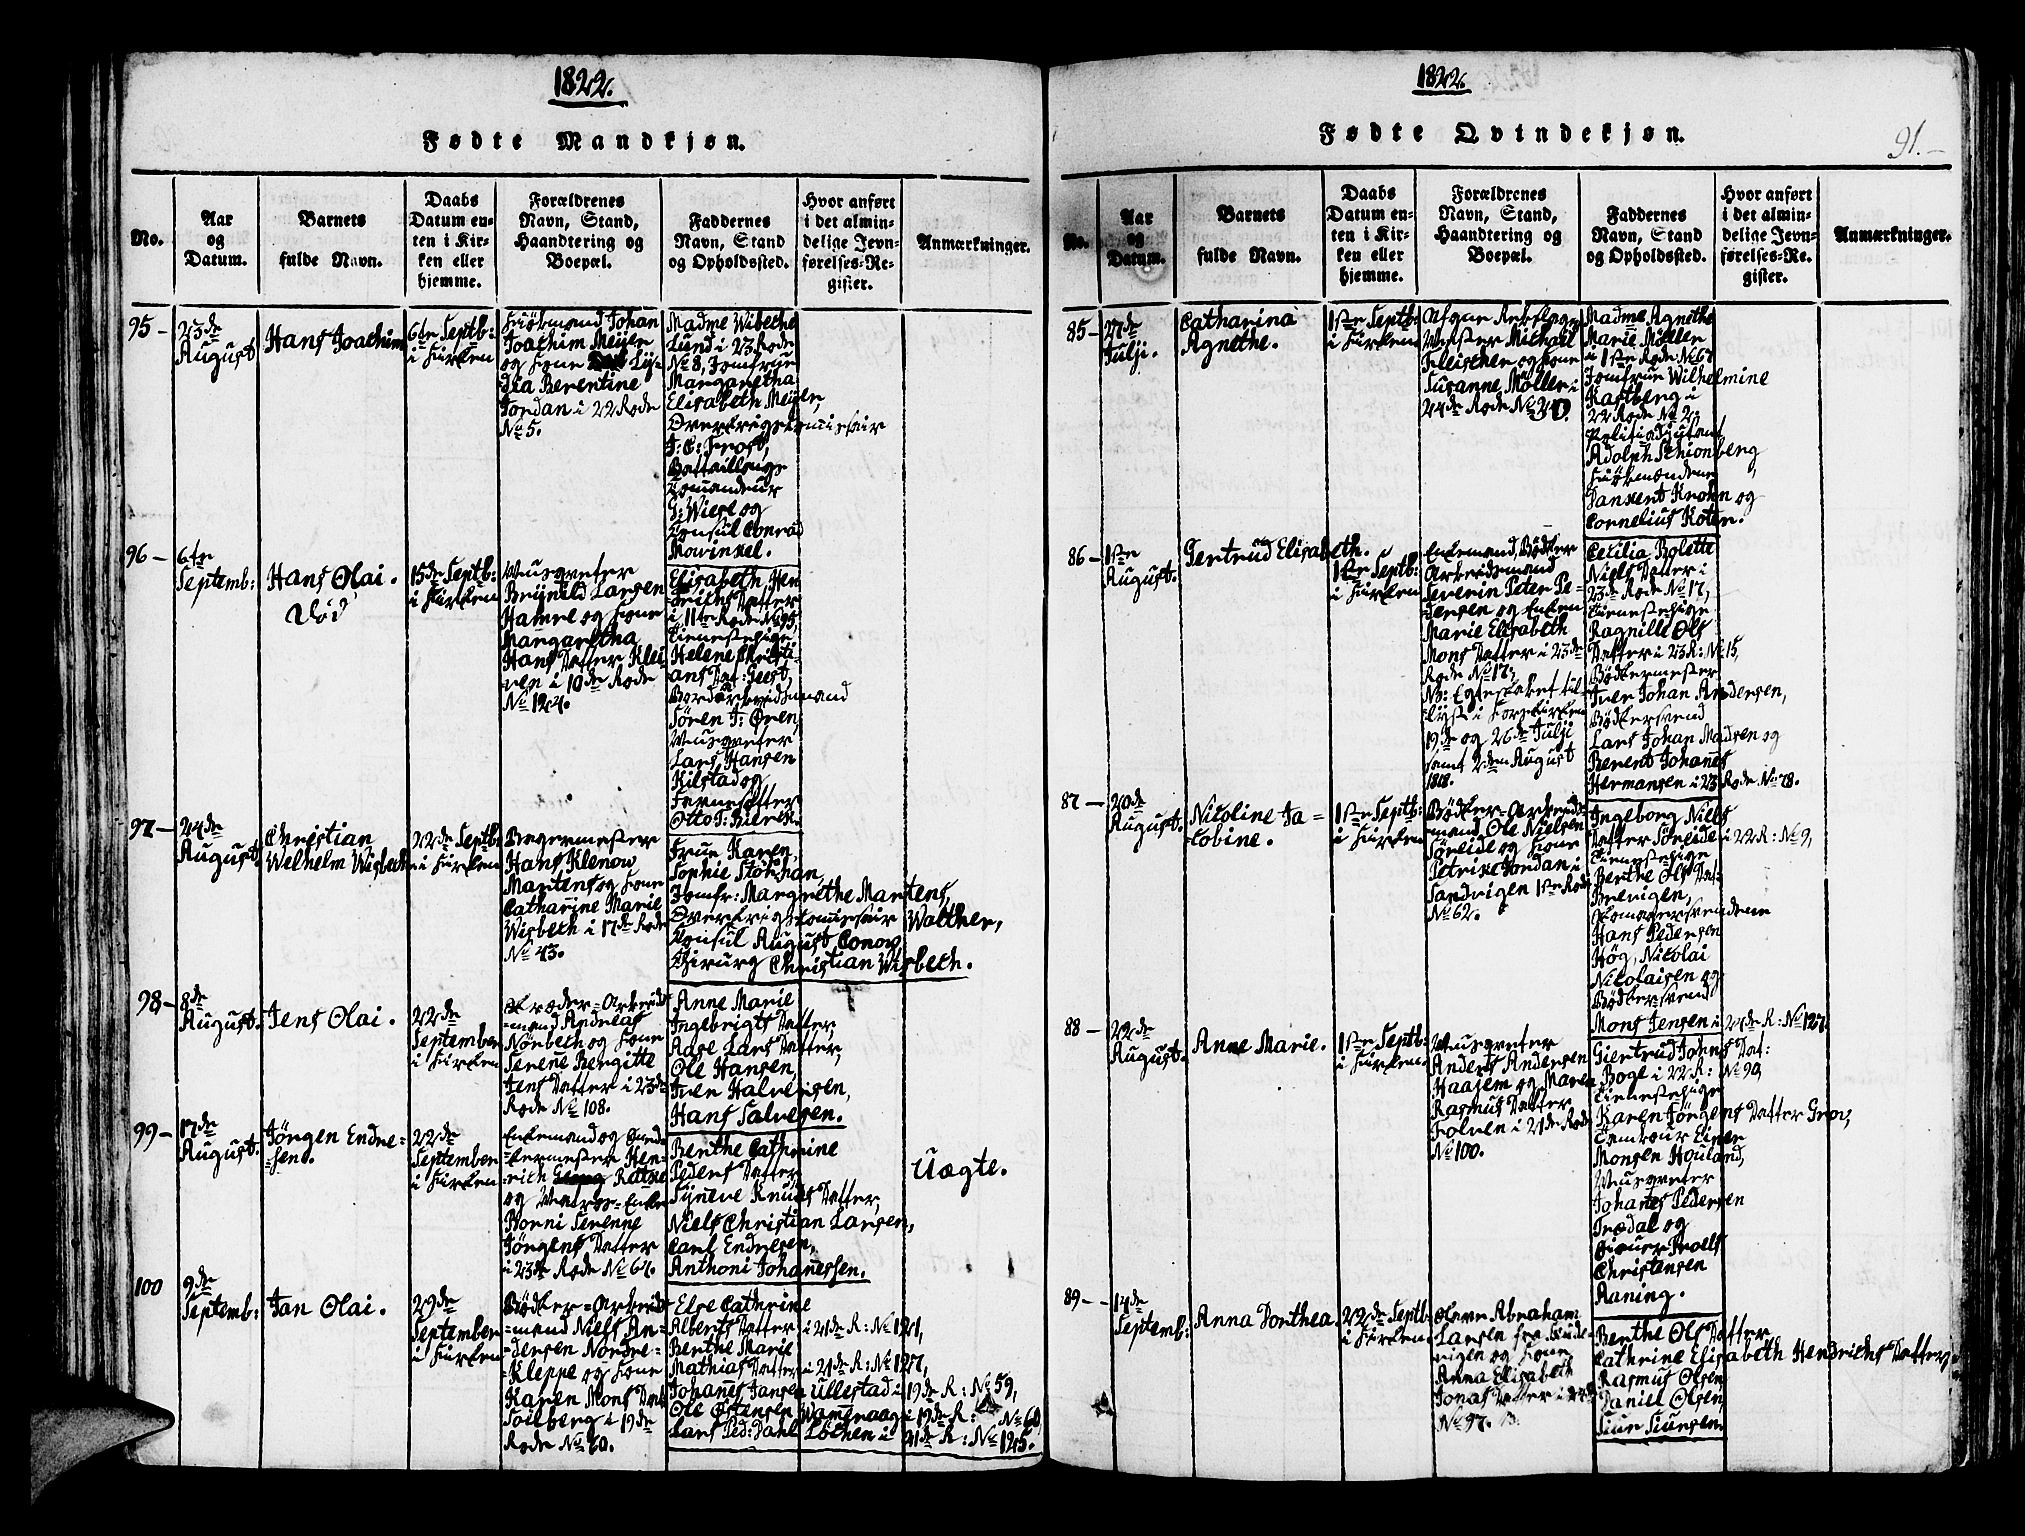 1822.
Fødte Mandkjøn.
No.
Aar
og
Datum.
Barnets
fulde Navn.
Daabs
Datum en-
ten i Kir-
ken eller
hjemme.
Forældrenes
Navn, Stand,
Haandtering og
Boepæl.
Faddernes
Navn, Stand
og Opholdssted.
Hvor anført
i det almin-
delige Jevn-
førelses-Re-
gister.
Anmærkninger.
95 -
23de
August
Hans Joachim
6te Septb:
i Kirken
Kiöbmand Johan
Joachim Meÿer
og Kone Lÿ-
dia Berentine
Jordan i 22 Rode
No 5.
Madme Wibethe
Lund i 23 Rode
No 8, Jomfrue
Margaretha
Elisabeth Meÿer,
Overkrigskomissair
J: C: Frost,
Battaillons
Comandeur
J: Wiese og
Konsul Conrad
Mowinkel.
96 -
6te
Septemb:
Hans Olai.
Död
15de Septb:
i Kirken
Muusqveter
Brÿnild Larsen
Hamre og Kone
Margaretha
Hans Datter Klei-
ven i 10de Rode
No 124.
Elisabeth Hen
drichs Datter
i 11te Rode No 95,
Tienestepige
Helene Christi-
ans Dat: Geest,
Bordarbeidsmand
Sören J: Øren,
Muusqveter
Lars Hansen
Kilstad og
Otto J: Kierek.
97 -
24de
August
Christian
Welhelm Wisbech
22de Septb:
i Kirken
Bagermester
Hans Klenow
Martens og Kone
Catharine Marie
Wisbech i 17de Rode
No 43.
Frue Karen
Sophie Stöhsan,
Jomfr: Margrethe Martens,
Overkrigskomissair Walther,
Konsul August Conow,
Chirurg Christian Wisbech.
98 -
8de
August.
Jens Olai.
22de
September
i Kirken
Træder-Arbeids-
mand Andreas
Nörbech og Kone
Serene Bergitte
Jens Datter i 23de
Rode No 108.
Anne Marie
Ingebrigts Datter
Aase Lars Datter,
Ole Hansen,
Iver Halvorsen,
Hans Salvesen.
99 -
17de
August.
Jörgen Endre-
sen.
22de
September
i Kirken
Enkemand og
Hen-
rich Rettke
og Matros-Enke
Borni Serenne
Jörgens Datter
i 23de Rode No 67.
Berthe Cathrine
Peders Datter
Sÿneve Knuds Datter,
Niels Christian Larsen,
Carl Endresen,
Anthoni Johanessen.
Uægte.
100
9de
Septemb:
Jan Olai.
29de
September
i Kirken
Bödker-Arbeids-
mand Niels An-
dersen Nordre-
Kleppe og Kone
Karen Mons Dat:
Solberg i 19de
Rode No 60.
Else Cathrine
Alberts Datter i 21de R: No 121,
Berthe Marie
Mathias Datter i 21de R: No 127,
Johanes Jansen Ullestad i 19de R: No 59,
Ole Östensen Wameraag i 19de R: No 60,
Lars Ped: Dahl Löchen i 21de R: No 125.
1822.
Fødte Qvindekjøn.
91.-
No.
Aar
og
Datum.
Barnets
fulde Navn.
Daabs
Datum en-
ten i Kir-
ken eller
hjemme.
Forældrenes
Navn, Stand,
Haandtering og
Boepæl.
Faddernes
Navn, Stand
og Opholdssted.
Hvor anført
i det almin-
delige Jevn-
førelses-Re-
gister.
Anmærkninger.
85 -
27de
Julji.
Catharina
Agnethe.
1ste Septb:
i Kirken
Michael
Fleischer og Kone
Susanne Möller i
24de Rode No 20.
Madme Agnethe
Marie Möller
i 1ste Rode No 67
Jomfrue Wilhelmine
Kastberg i
22 Rode No 2,
Politiadjutant
Adolph Schionberg
Kiöbmændene
Danxent Krohn og
Cornelius Koter.
86 -
1ste
August.
Gertrud Elisabeth.
1ste Septb:
i Kirken
Enkemand, Bödker
Arbeidsmand
Severin Peter Pe-
dersen og Enken
Marie Elisabeth
Mons Datter i 23de
Rode No 17,
Nb: Egteskabet til-
lÿst i Korskirken
19de og 26de Julji
samt 2den August
1818.
Cecilia Bolette
Niels Datter i
23de Rode No 17,
Tienestepige
Ragnille Ols
Datter i 23 R: No 15,
Bödkermester
Iver Johan Andersen,
Bödkersvend
Lars Johan Madsen og
Berent Johanes
Hermansen i 23 Rode No 78.
87 -
20de
August.
Nicoline Ja-
cobine.
1ste Septb:
i Kirken
Bödker-Arbeids-
mand Ole Nielsen
Söreide og Kone
Petrike Jordan i
Sandvigen 1ste Rode
No 62.
Ingeborg Niels
Datter Söreide i 22 R: No 9,
Tienestepige
Berthe Ols Dat:
Brevigen,
Hans Pedersen
Hög, Nicolai
Nicolaisen og
Bödkersvend
Mons Jensen i 24de R: No 127.
88 -
22de
August.
Anne Marie.
1ste Septb:
i Kirken.
Muusqveter
Anders Andersen
Haajem og Maren
Rasmus Datter
Folven i 21de Rode
No 100.
Giertrud Johns Dat:
Boge i 22 R: No 90,
Tienestepige
Karen Jörgens Datter Grov,
Tambour Einer
Monsen Houland,
Muusqveter
Johanes Pedersen
Trædal og
Troels
Christensen
Raning.
89 -
14de
Septemb:
Anna Dorthea.
22de Septb:
i Kirken
Abraham
Larsen fra
vigen og Kone
Anna Elisabeth
Jonas Datter i
No 97.
Berthe Ols Datter
Cathrine Elisabeth Hendrichs Datter,
Rasmus Olsen
Daniel Olsen,
Siur Siursen.